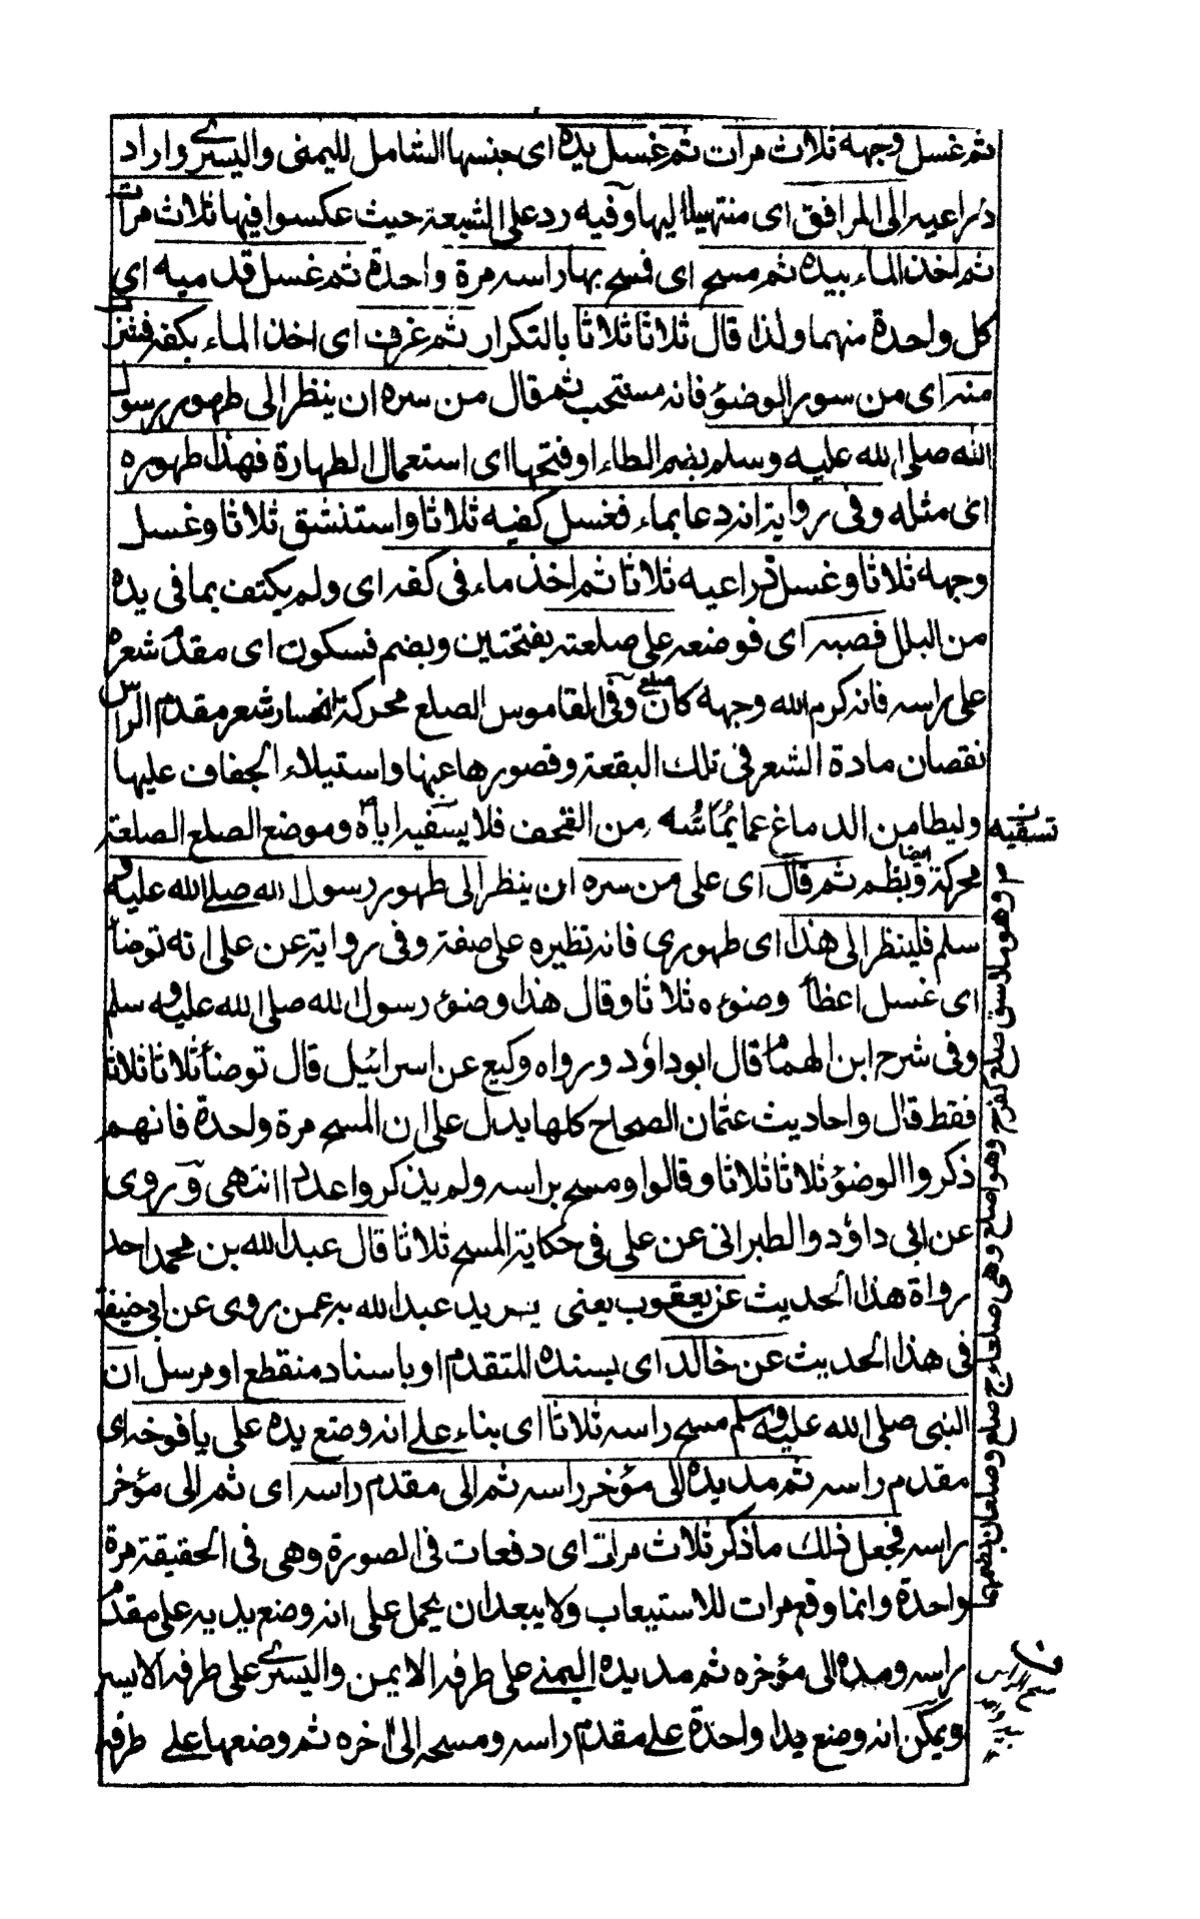 ثم غسل وجهه ثلاث مرات ثم غسل يده اى جنسها الشامل لليمنى واليسرى واراد
ذراعيه الى المرافق اى منتهيا اليها وفيه رد على الشيعة حيث عكسوا فيها ثلاث مرات
ثم اخذ الماء بيده ثم مسح اى فمسح بها راسه مرة واحدة ثم غسل قدميه اى
كل واحدة منهما ولذا قال ثلاثا ثلاثا بالتكرار ثم غرف اى اخذ الماء بكفه فشرب
منه اى من سور الوضوٴ فانه مستحب ثم قال من سره ان ينظر الى طهور رسول
الله صلى الله عليه وسلم بضم الطاء او فتحها اى استعمال الطهارة فهذا طهوره
اى مثله وفى رواية انه دعا بماء فغسل كفيه ثلاثا واستنشق ثلاثا وغسل
وجهه ثلاثا وغسل ذراعيه ثلاثا ثم اخذ ماء فى كفه اى ولم يكتف بما فى يده
من البلل فصبه اى فوضعه على صلعته بفتحتين وبضم فسكون اى مقدم شعره
على راسه فانه كرم الله وجهه كان اصلع وفى القاموس الصلع محركة انحسار شعر مقدم الراس
نقصان مادة الشعر فى تلك البقعة وقصورها عنها واستيلاء الجفاف عليها
وليطامن الدماغ عما يماسه من القحف فلا يسقيه اياه وموضع الصلع الصلعة
محركة وبظم ايضا ثم قال اى على من سره ان ينظر الى طهور رسول الله صلى الله عليه و
سلم فلينظر الى هذا اى طهورى فانه نظيره على صفته وفى رواية عن على انه توضأ
اى غسل اعضأ وضوءه ثلاثا وقال هذا وضوٴ رسول الله صلى الله عليه و سلم
وفى شرح ابن الهمام قال ابو داؤد ورواه وكيع عن اسرائيل قال توضأ ثلاثا ثلاثا
فقط قال واحاديث عثمان الصحاح كلها يدل على ان المسح مرة واحدة فانهم
ذكروا الوضوٴ ثلاثا ثلاثا وقالوا ومسح براسه ولم يذكروا عددا انتهى وروى
عن ابى داؤد والطبرانى عن على فى حكاية المسح ثلاثا قال عبد الله بن محمد احد
رواة هذا الحديث عن يعقوب يعنى يريد عبد الله به عمن روى عن ابى حنيفة
فى هذا الحديث عن خالد اى بسنده المتقدم او باسناد منقطع او مرسل ان
النبى صلى الله عليه وسلم مسح راسه ثلاثا اى بناء على انه وضع يده على يافوخه اى
مقدم راسه ثم مد يده الى مؤخر راسه ثم الى مقدم راسه اى ثم الى مؤخر
راسه فجعل ذلك ما ذكر ثلاث مرات اى دفعات فى الصورة وهى فى الحقيقة مرة
واحدة وانما وقع مرات للاستيعاب ولا يبعد ان يحمل على انه وضع يديه على مقدم
راسه ومده الى مؤخره ثم مد يده اليمنى على طرفه الايمن واليسرى على طرفه الايسر
ويمكن انه وضع يدا واحدة على مقدم راسه ومسحه الى اخره ثم وضعها على طرفه
تسقيه
وهو ملاسق صلع كفرح وهو اصلع وهى صلعاء ج صلع وصلعان بضمها